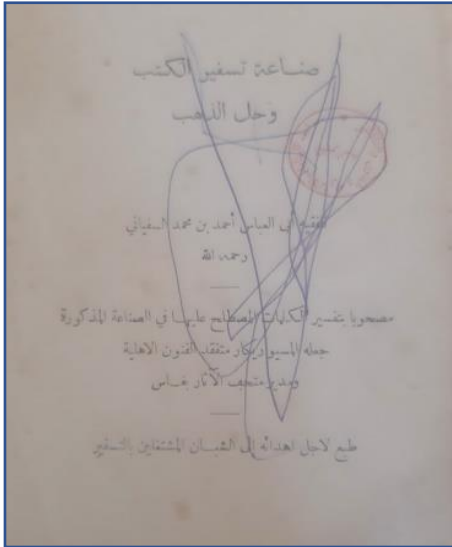 صناعة تسفير الكتب
وحل الذهب
للفقيه أبى العباس أحمد بن محمد السفياني
رحمه الله
مصحوبا بتفسير الكلمات المصطلح عليها في الصناعة المذكورة
جعله المسيو ريكار متفقد الفنون الاهلية
ومدير متحف الآثار بفاس
طبع لاجل اهدائه إلى الشبان المشتغلين بالتسفير